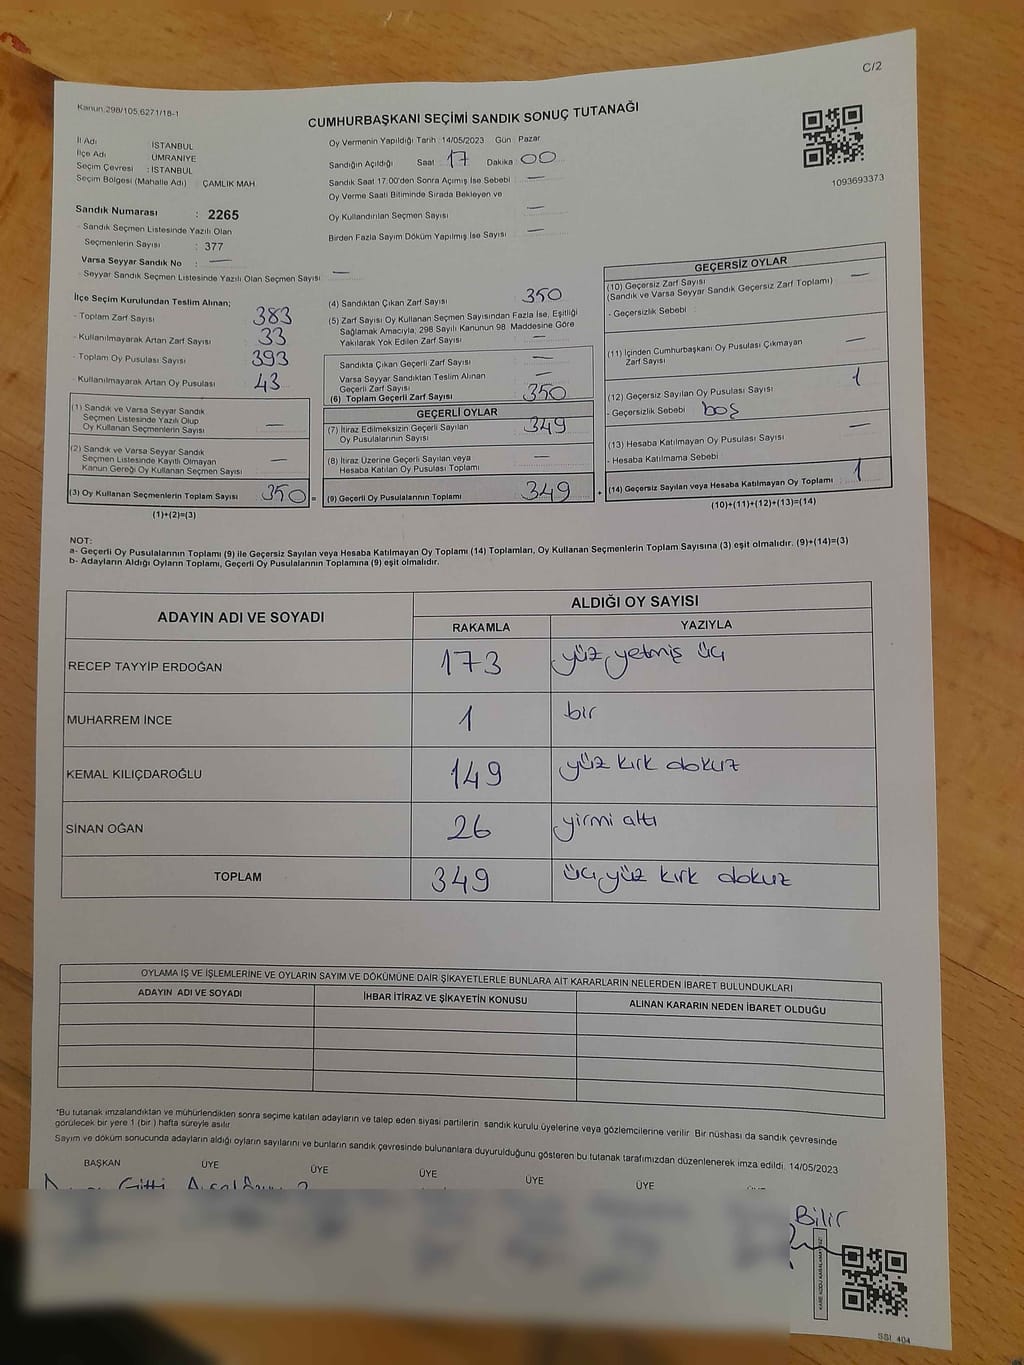 C/2
Kanun.298/105,6271/18-1
CUMHURBAŞKANI SEÇİMİ SANDIK SONUÇ TUTANAĞI
İl Adı : İSTANBUL
İlçe Adı : ÜMRANİYE
Seçim Çevresi : İSTANBUL
Seçim Bölgesi (Mahalle Adı) : ÇAMLIK MAH
Oy Vermenin Yapıldığı Tarih : 14/05/2023 Gün : Pazar
Sandığın Açıldığı Saat : 17 Dakika : 00
Sandık Saat 17:00'den Sonra Açımış İse Sebebi : —
Oy Verme Saati Bitiminde Sırada Bekleyen ve
Oy Kullandırılan Seçmen Sayısı : —
Birden Fazla Sayım Döküm Yapılmış İse Sayısı : —
1093693373
Sandık Numarası : 2265
- Sandık Seçmen Listesinde Yazılı Olan
Seçmenlerin Sayısı : 377
Varsa Seyyar Sandık No : —
- Seyyar Sandık Seçmen Listesinde Yazılı Olan Seçmen Sayısı : —
İlçe Seçim Kurulundan Teslim Alınan;
- Toplam Zarf Sayısı 383
- Kullanılmayarak Artan Zarf Sayısı : 33
- Toplam Oy Pusulası Sayısı 393
- Kullanılmayarak Artan Oy Pusulası : 43
(1) Sandık ve Varsa Seyyar Sandık
Seçmen Listesinde Yazılı Olup
Oy Kullanan Seçmenlerin Sayısı —
(2) Sandık ve Varsa Seyyar Sandık
Seçmen Listesinde Kayıtlı Olmayan
Kanun Gereği Oy Kullanan Seçmen Sayısı : —
(3) Oy Kullanan Seçmenlerin Toplam Sayısı 350 =
(1)+(2)=(3)
(4) Sandıktan Çıkan Zarf Sayısı : 350
(5) Zarf Sayısı Oy Kullanan Seçmen Sayısından Fazla İse, Eşitliği
Sağlamak Amacıyla, 298 Sayılı Kanunun 98. Maddesine Göre
Yakılarak Yok Edilen Zarf Sayısı : —
Sandıkta Çıkan Geçerli Zarf Sayısı : —
Varsa Seyyar Sandıktan Teslim Alınan
Geçerli Zarf Sayısı : —
(6) Toplam Geçerli Zarf Sayısı : 350
GEÇERLİ OYLAR
(7) İtiraz Edilmeksizin Geçerli Sayılan
Oy Pusulalarının Sayısı : 349
(8) İtiraz Üzerine Geçerli Sayılan veya
Hesaba Katılan Oy Pusulası Toplamı : —
(9) Geçerli Oy Pusulalarının Toplamı : 349 +
GEÇERSİZ OYLAR
(10) Geçersiz Zarf Sayısı : —
(Sandık ve Varsa Seyyar Sandık Geçersiz Zarf Toplamı)
- Geçersizlik Sebebi :
(11) İçinden Cumhurbaşkanı Oy Pusulası Çıkmayan
Zarf Sayısı : —
(12) Geçersiz Sayılan Oy Pusulası Sayısı : 1
- Geçersizlik Sebebi : boş
(13) Hesaba Katılmayan Oy Pusulası Sayısı : —
- Hesaba Katılmama Sebebi :
(14) Geçersiz Sayılan veya Hesaba Katılmayan Oy Toplamı : 1
(10)+(11)+(12)+(13)=(14)
NOT:
a- Geçerli Oy Pusulalarının Toplamı (9) ile Geçersiz Sayılan veya Hesaba Katılmayan Oy Toplamı (14) Toplamları, Oy Kullanan Seçmenlerin Toplam Sayısına (3) eşit olmalıdır. (9)+(14)=(3)
b- Adayların Aldığı Oyların Toplamı, Geçerli Oy Pusulalarının Toplamına (9) eşit olmalıdır.
ADAYIN ADI VE SOYADI
ALDIĞI OY SAYISI
RAKAMLA YAZIYLA
RECEP TAYYİP ERDOĞAN 173 yüz yetmiş üç
MUHARREM İNCE 1 bir
KEMAL KILIÇDAROĞLU 149 yüz kırk dokuz
SİNAN OĞAN 26 yirmi altı
TOPLAM 349 üç yüz kırk dokuz
OYLAMA İŞ VE İŞLEMLERİNE VE OYLARIN SAYIM VE DÖKÜMÜNE DAİR ŞİKAYETLERLE BUNLARA AİT KARARLARIN NELERDEN İBARET BULUNDUKLARI
ADAYIN ADI VE SOYADI İHBAR İTİRAZ VE ŞİKAYETİN KONUSU ALINAN KARARIN NEDEN İBARET OLDUĞU
*Bu tutanak imzalandıktan ve mühürlendikten sonra seçime katılan adayların ve talep eden siyasi partilerin sandık kurulu üyelerine veya gözlemcilerine verilir. Bir nüshası da sandık çevresinde
görülecek bir yere 1 (bir) hafta süreyle asılır.
Sayım ve döküm sonucunda adayların aldığı oyların sayılarını ve bunların sandık çevresinde bulunanlara duyurulduğunu gösteren bu tutanak tarafımızdan düzenlenerek imza edildi. 14/05/2023
BAŞKAN ÜYE ÜYE ÜYE ÜYE ÜYE
Bilir
SSI 404